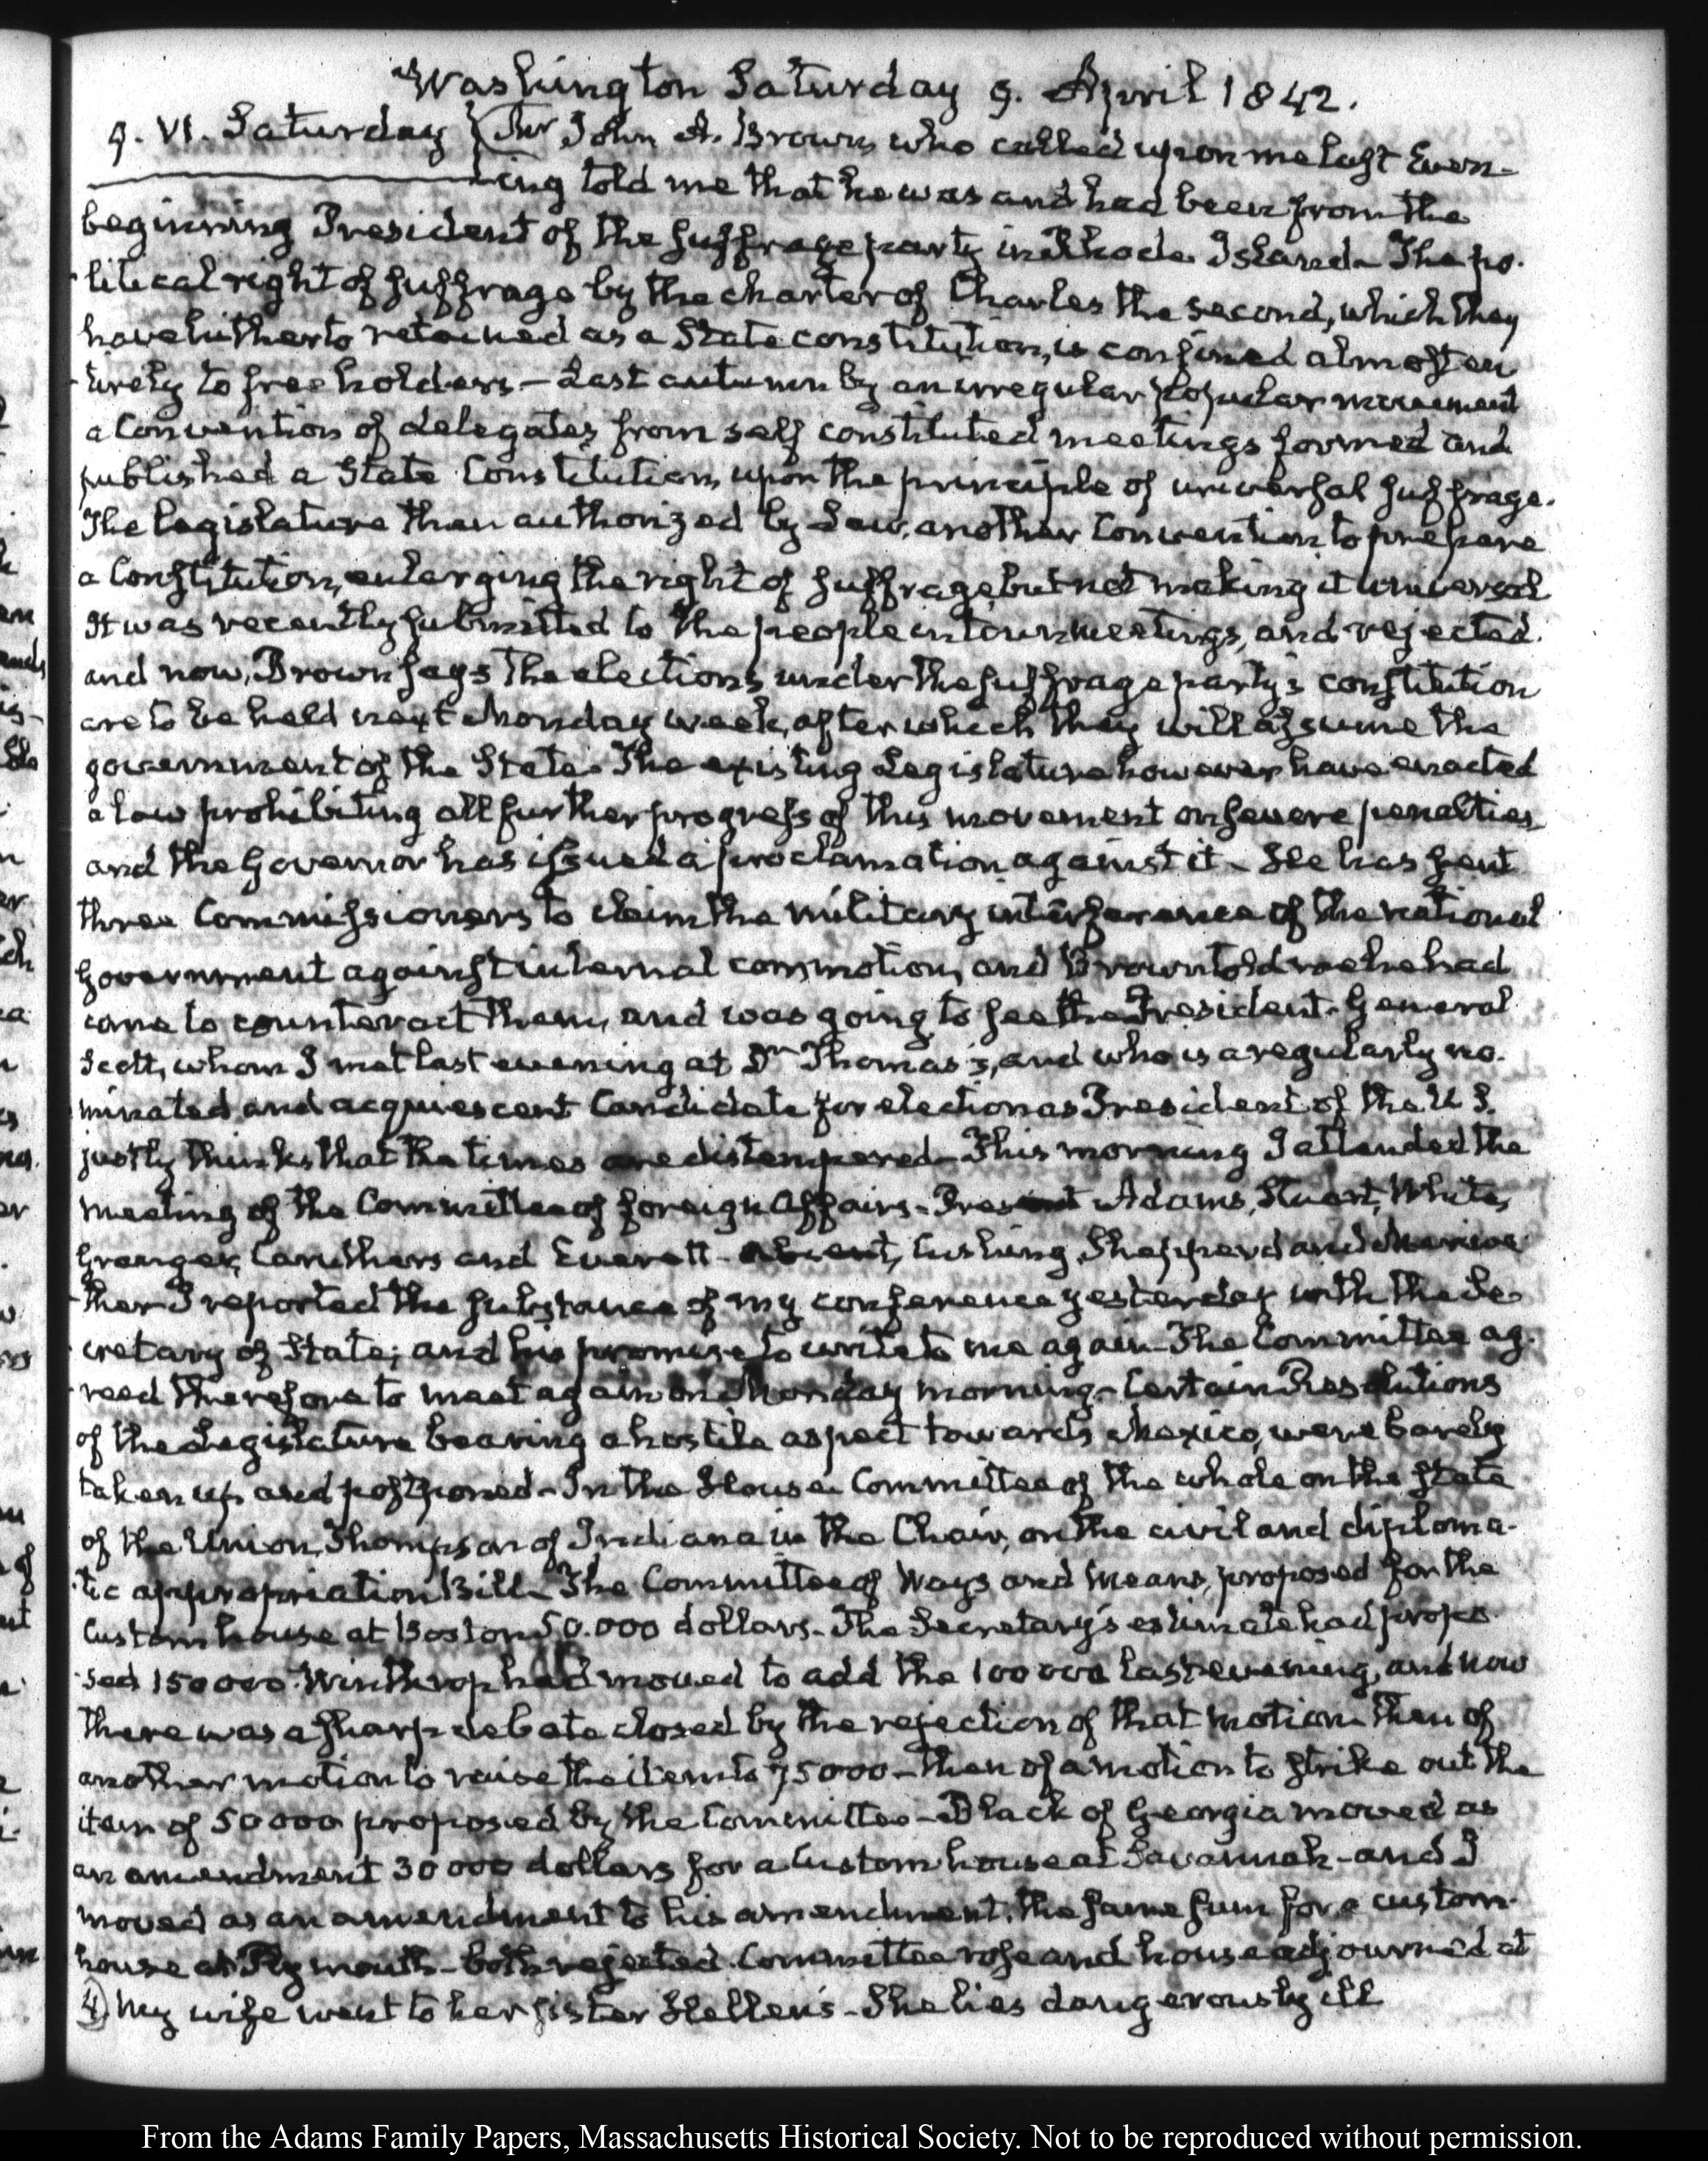 Washington Saturday 9. April 1842.
9. VI. Saturday } Mr John A. Brown who called upon me last Even-
ing told me that he was and had been from the
beginning President of the suffrage party in Rhode Island. The po-
litical right of suffrage by the charter of Charles the second, which they
have hitherto retained as a State constitution, is confined almost en
tirely to freeholders – Last autumn by an irregular popular movement
a Convention of delegates from self constituted meetings formed and
published a State Constitution, upon the principle of universal suffrage.
The Legislature then authorized by Law, another Convention to prepare
a Constitution, enlarging the right of suffrage, but not making it universal
It was recently submitted to the people in town meetings, and rejected.
and now, Brown says the elections under the suffrage party's constitution
are to be held next Monday week, after which they will assume the
government of the State. The existing Legislature however have enacted
a law prohibiting all further progress of this movement on severe penalties
and the Governor has issued a proclamation against it – He has sent
three Commissioners to claim the military interference of the national
Government against internal commotion, and Brown told me he had
come to counteract them, and was going to see the President. General
Scott, whom I met last evening at Dr Thomas's, and who is a regularly no-
minated and acquiescent Candidate for election as President of the U S.
justly thinks that the times are distempered – This morning I attended the
meeting of the Committee of foreign Affairs – Present Adams, Stuart, White,
Granger, Caruthers and Everett – Absent, Cushing, Shepperd and Meriwe
ther I reported the substance of my conference yesterday with the Se-
cretary of State; and his promise to write to me again – The Committee ag-
reed therefore to meet again on Monday morning – Certain Resolutions
of the Legislature bearing a hostile aspect towards Mexico, were barely
taken up and postponed – In the House Committee of the whole on the State
of the Union, Thompson of Indiana in the Chair, on the civil and diploma-
tic appropriation Bill – The Committee of Ways and Means, proposed for the
Custom house at Boston 50.000 dollars – The Secretary's estimate had propo
sed 150000. Winthrop had moved to add the 100000 last evening, and now
there was a sharp debate closed by the rejection of that motion – then of
another motion to raise the item to 75000 – then of a motion to strike out the
item of 50000 proposed by the Committee – Black of Georgia moved as
an amendment 30000 dollars for a Custom house at Savannah – and I
moved as an amendment to his amendment, the same sum for a custom-
house at Plymouth – both rejected. Committee rose and house adjourned at
4) My wife went to her sister Hellen's – She lies dangerously ill
From the Adams Family Papers, Massachusetts Historical Society. Not to be reproduced without permission.